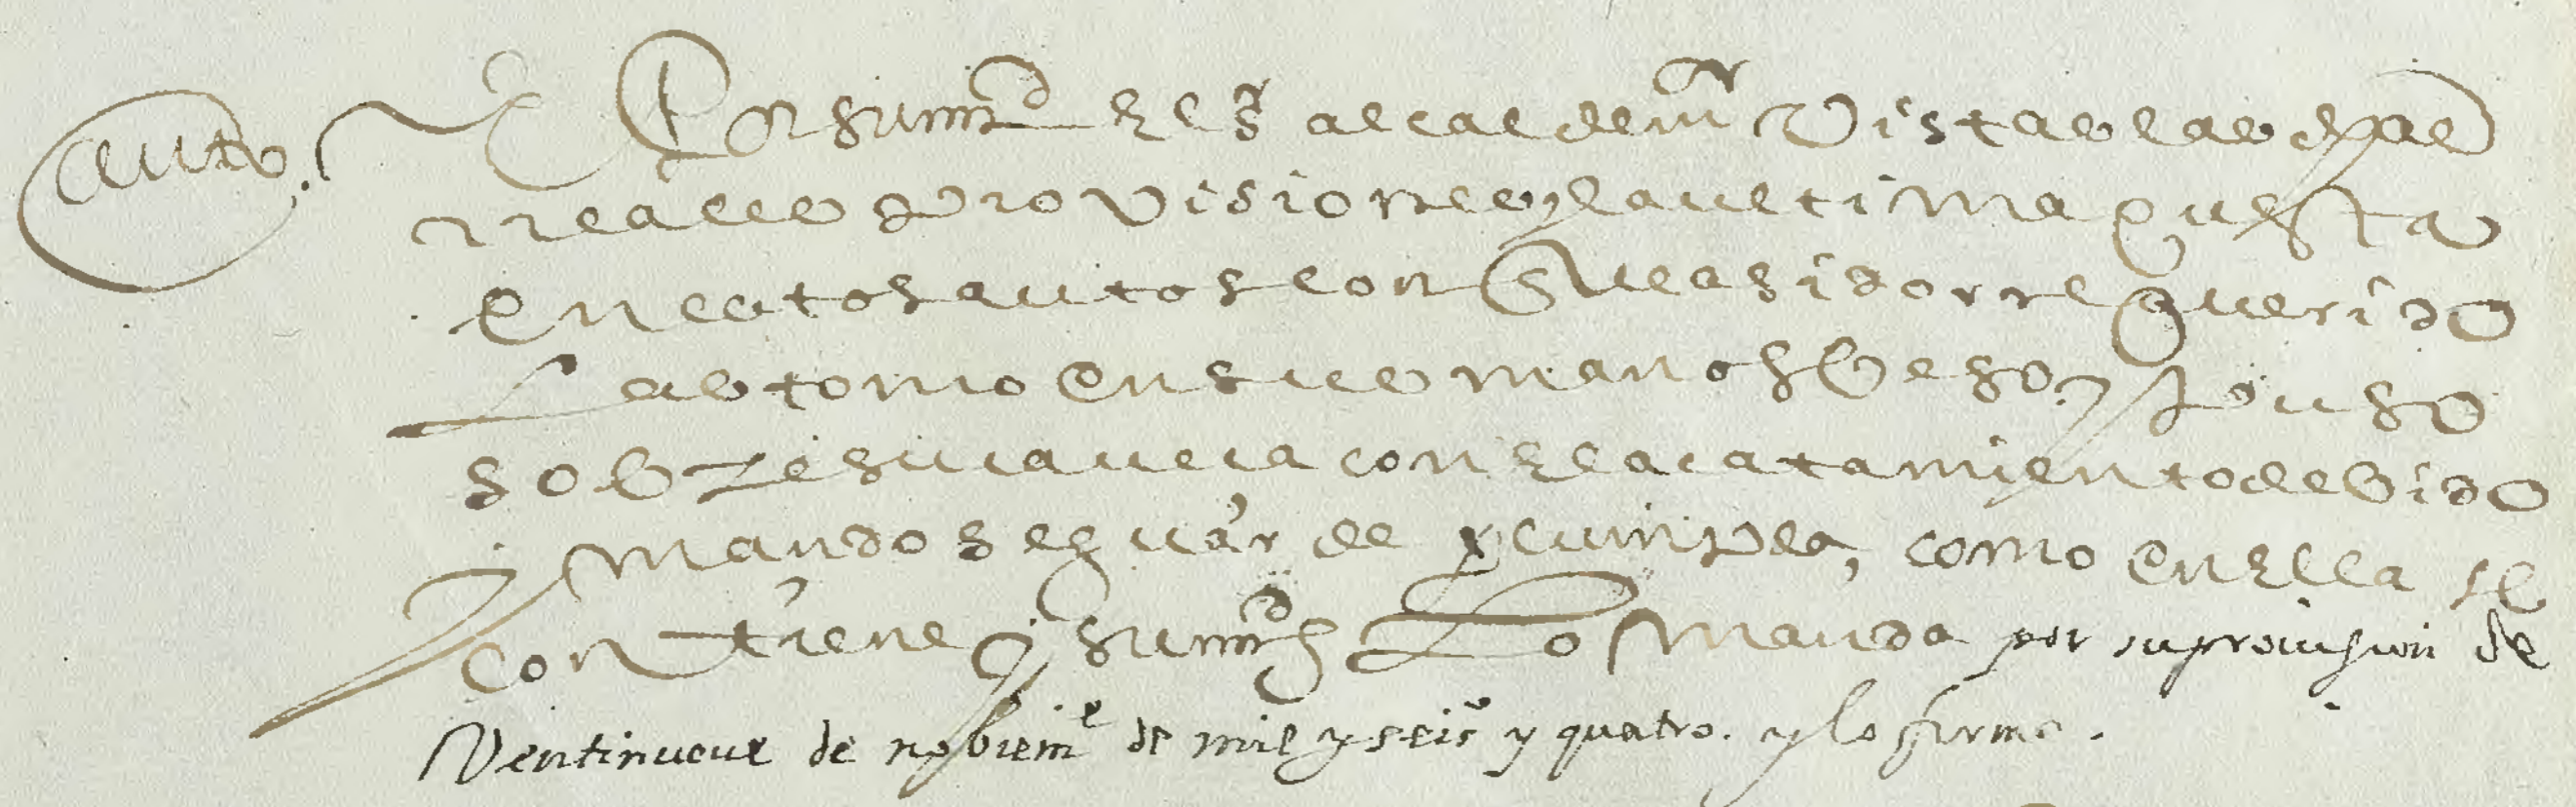 auto
E Por su md El sr alcalde mr Vistas las dhas
rreales proVisiones y la ultima questa
en estos autos con que a sido rrequerido
Las tomo en sus manos beso y puso
sobre su caveca con El acatamiento debido
y mando se guarde y cumpla, como en Ella se
contiene y su md Lo manda por su prouision de
Ventinueue de nobieme de mil y seisos y quatro. y lo firmo.